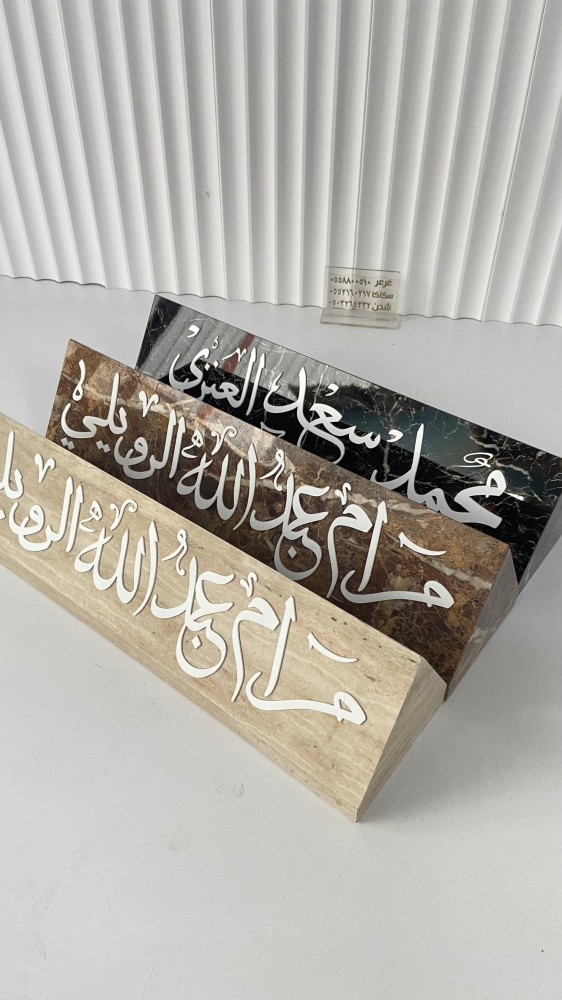 عرعر ٠٥٥٨٨٠٠٥٦٠
سكاكا ٠٥٥٢١٦٠٢٦٧
شحن ٠٥٠٣٢٦٤٢٣٢
محمد سعد العنزي
مرام عبدالله الرويلي
مرام عبدالله الرويلي